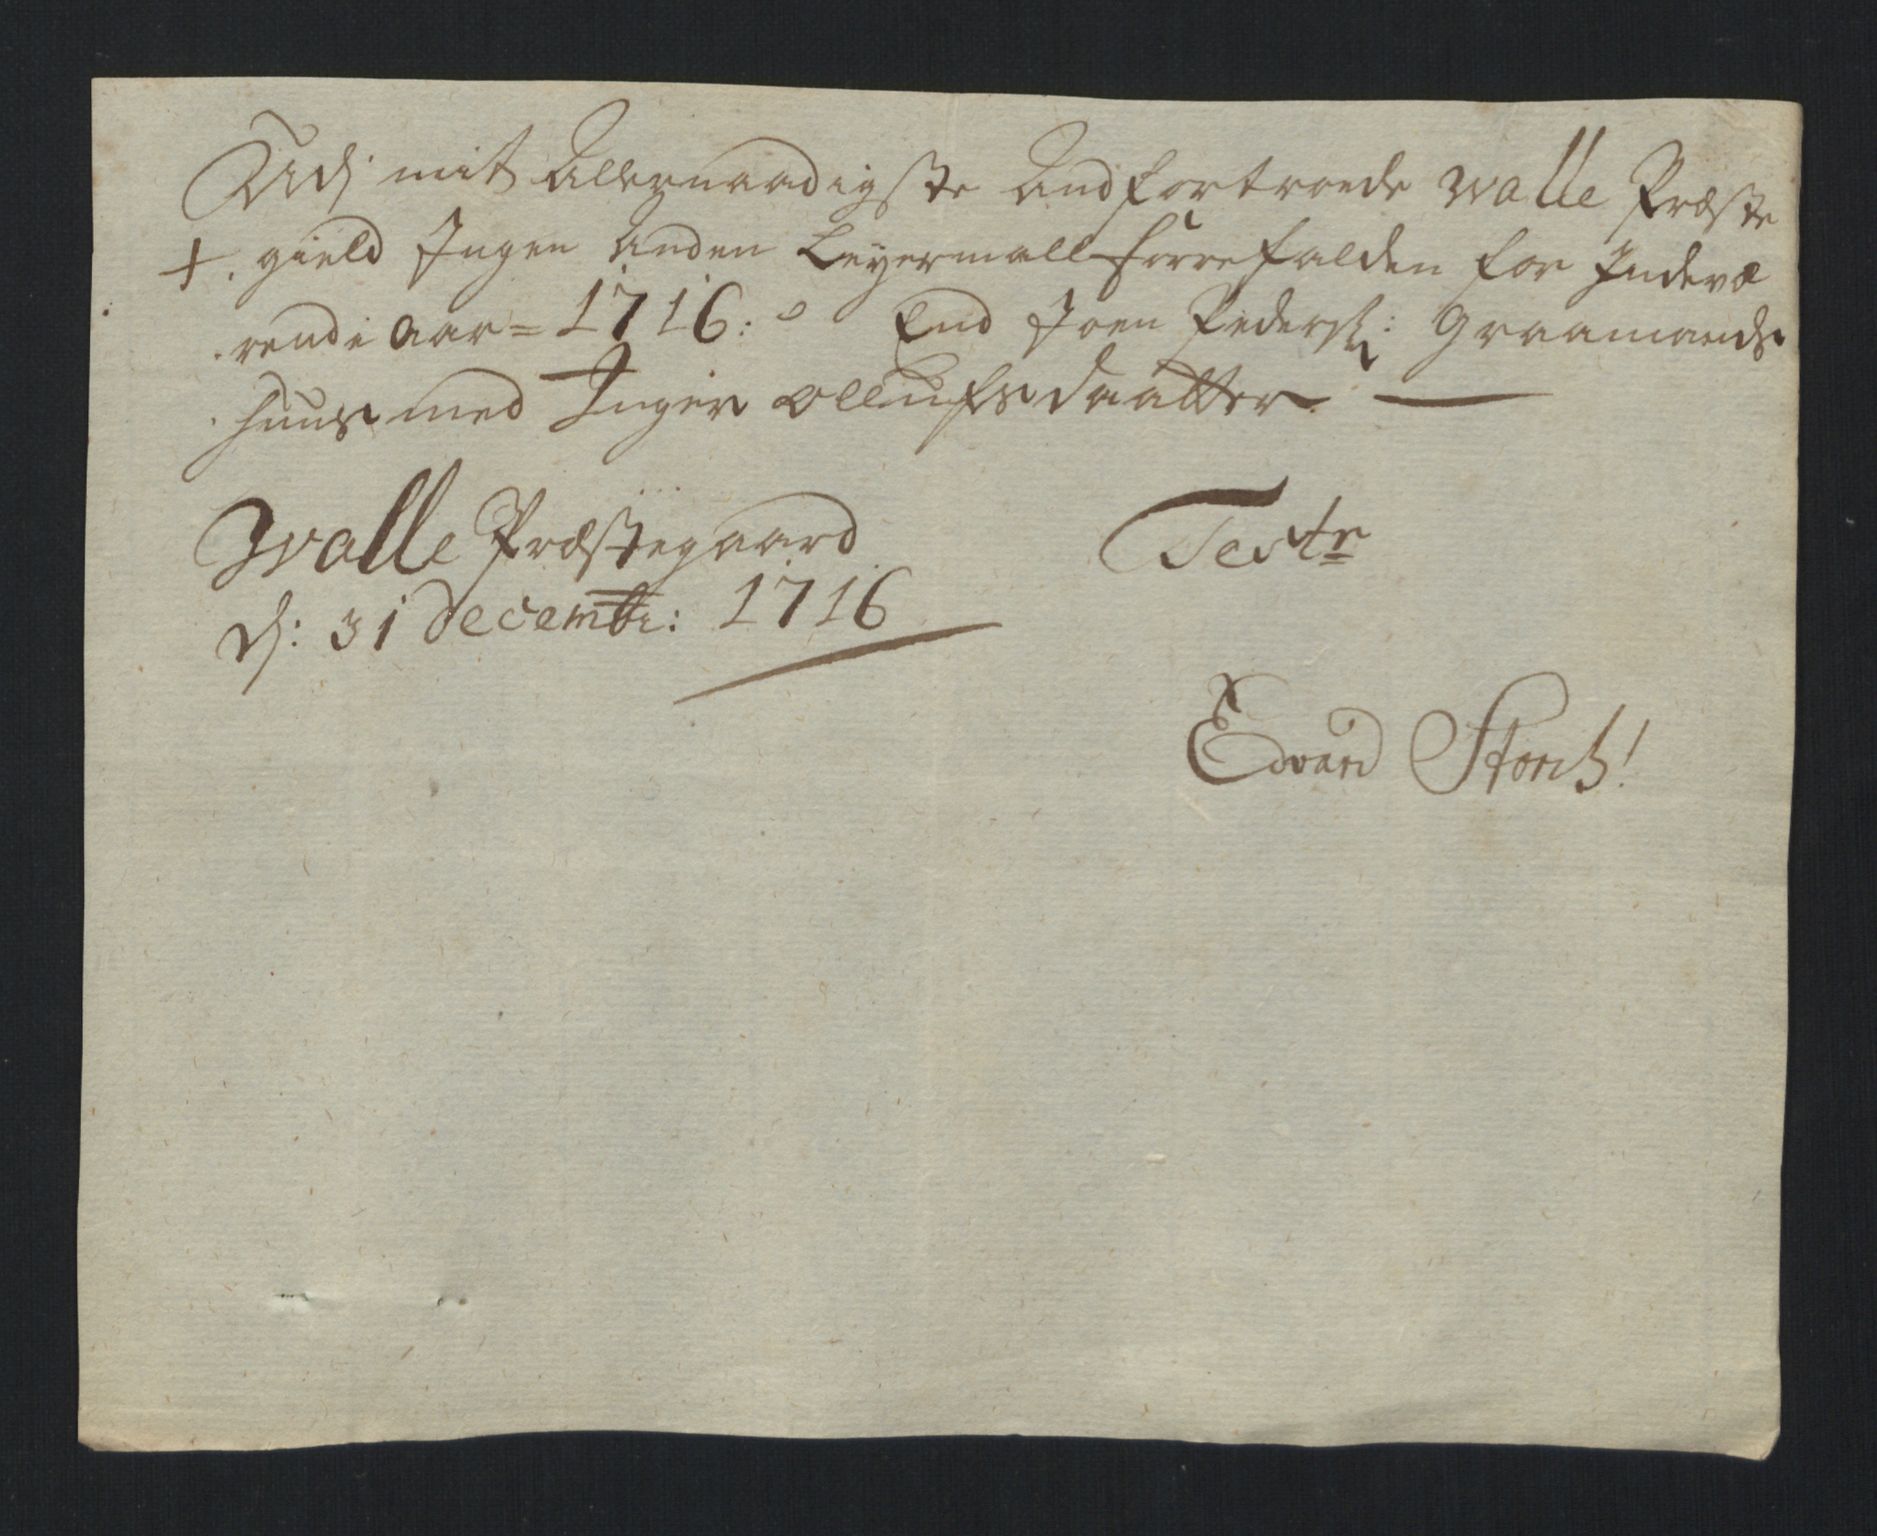 Udj mit Allernaadigste Andfortroede Walle Præste
+. gield Ingen Anden Leyermall hørrefalden for Indevæ
rende Aar = 1716: End Joen Peders: Graamands
huus med Inger Ollufsdaatter. —
Walle Præstegaard
d: 31 Decembr: 1716
Test
Edvard Storch!